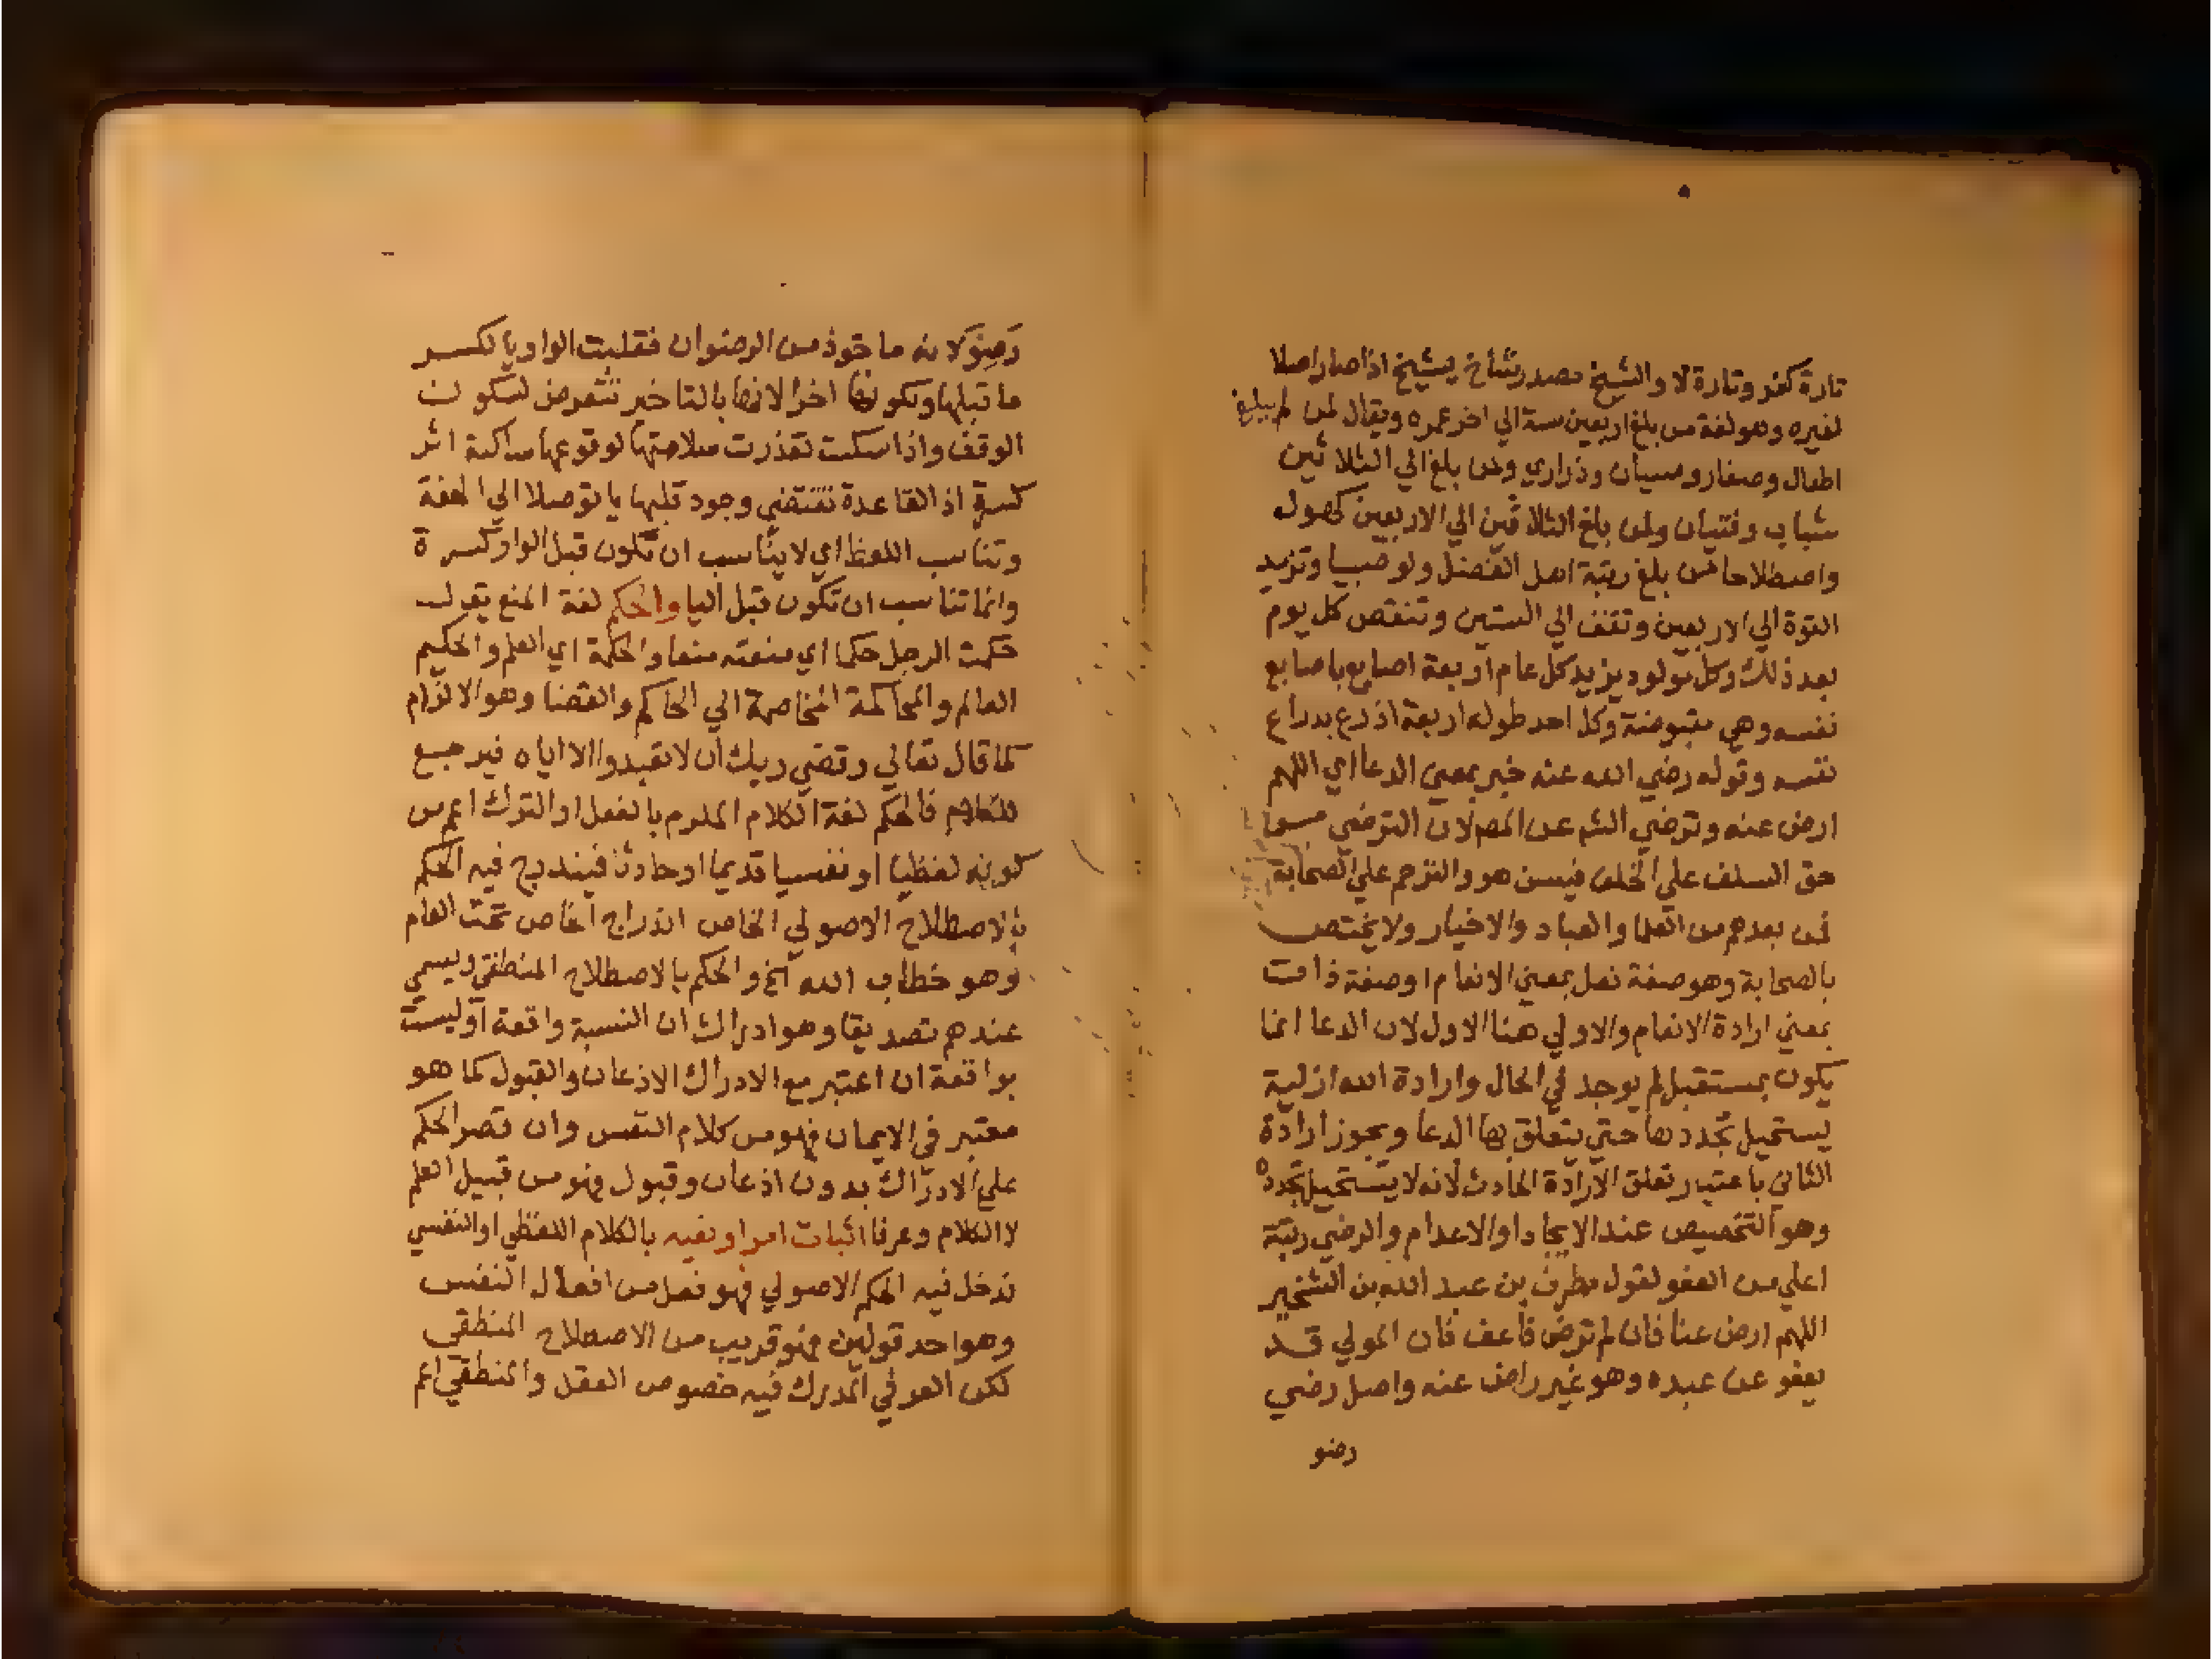 تارة كفر وتارة لا والشيخ مصدر شاخ يشيخ اذا صار اصلا
لغيره وهو لغة من بلغ اربعين سنة الي اخر عمره ويقال لمن لم يبلغ
اطفال وصغار وصبيان وذراري ولمن بلغ الي الثلاثين
شباب وفتيان ولمن بلغ الثلاثين الي الاربعين كهول
واصطلاحا من بلغ رتبة اهل الفضل ولو صبيا وتزيد
القوة الي الاربعين وتقف الي الستين وتنقص كل يوم
بعد ذلك وكل مولود يزيد كل عام اربعة اصابع باصابع
نفسه وهي مقبوضة وكل احد طوله اربعة اذرع بدراع
نفسه وقوله رضي الله عنه خبر بمعني الدعا اي اللهم
ارض عنه وترضي الشم عن المص لان الترضي
حق السلف علي الخلف فيسن هو والترحم علي الصحابة
فمن بعدهم من العلما والعباد والاخيار ولا يختص
بالصحابة وهو صفة فعل بمعني الانعام اوصفة ذات
بمعني ارادة الانعام والاولي هنا الاول لان الدعا انما
يكون بمستقبل لم يوجد في الحال وارادة الله ازلية
يستحيل تجددها حتي يتعلق بها الدعا ويجوز ارادة
الثاني باعتبار تعلق الارادة الحادث لانه لا يستحيل تجدده
وهو التخصيص عند الايجاد او الاعدام والرضي رتبة
اعلي من العفو لقول مطرف بن عبد الله بن الشخير
اللهم ارض عنا فان لم ترض فاعف فان المولي قد
يعفو عن عبده وهو غير راض عنه واصل رضي
رضو
رَضِوَ لانه ماخوذ من الرضوان فقلبت الواو يا لكسر
ما قبلها وتكونها اخرا لانها بالتاخير تتعرض لسكون
الوقف واذا سكنت تعذرت سلامتها لوقوعها ساكنة اثر
كسرة اذ القاعدة تقتضي وجود قلبها يا توصلا الي الخفة
وتناسب اللفظ اي لا يناسب ان تكون قبل الواو كسرة
وانما تناسب ان تكون قبل اليا والحكم لغة المنع يقال
حكمت الرجل حكما اي منعته منعا والحكمة اي العلم والحكيم
العالم والمحاكمة المخاصمة الي الحاكم والقضا وهو الالزام
كما قال تعالي وقضي ربك ان لا تعبدوا الا اياه فيرجع
للكلام فالحكم لغة الكلام الملزم بالفعل او الترك اعم من
كونه لفظيا او نفسيا قديما او حادثا فيندرج فيه الحكم
بالاصطلاح الاصولي الخاص اندراج الخاص تحت العام
وهو خطاب الله الخ والحكم بالاصطلاح المنطقي ويسمي
عندهم تصديقا وهو ادراك ان النسبة واقعة او ليست
بواقعة ان اعتبر مع الادراك الاذعان والقبول كما هو
معتبر في الايمان فهو من كلام النفس وان قصر الحكم
علي الادراك بدون اذعان وقبول فهو من قبيل العلم
لا الكلام وعرفا اثبات امر او نفيه بالكلام اللفظي او النفسي
فدخل فيه الحكم الاصولي فهو فعل من افعال النفس
وهو احد قولين فهو قريب من الاصطلاح المنطقي
لكن العرفي المدرك فيه خصوص العقل والمنطقي اعم